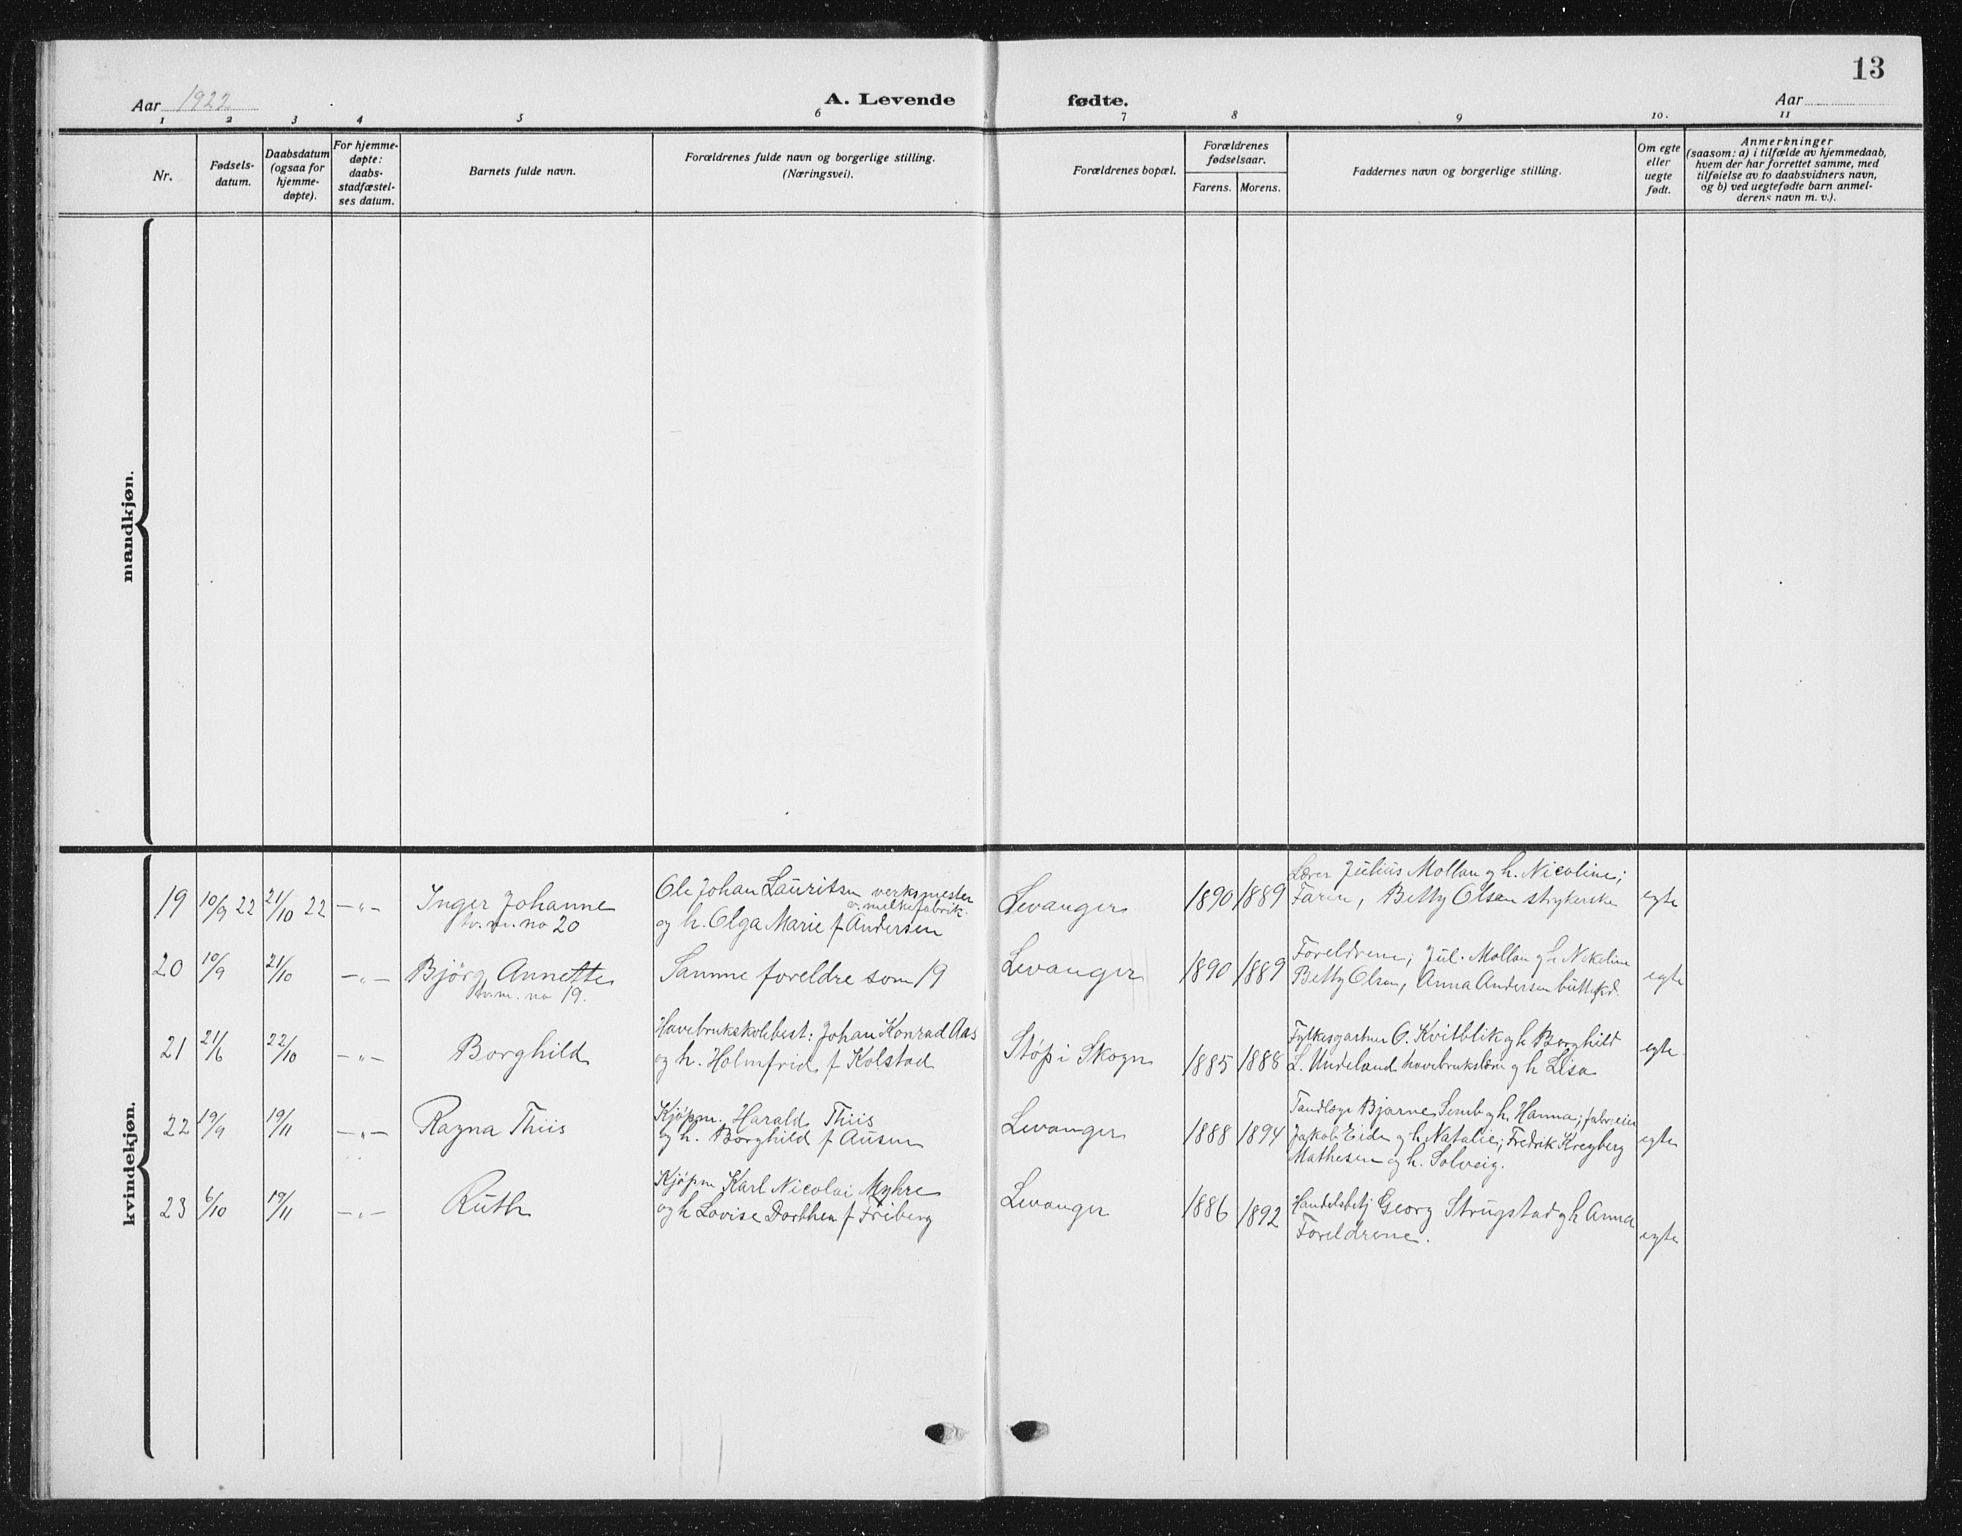 13
Aar 1922
A. Levende
fødte.
Aar
1 2 3 4 5 6 7 8 9 10. 11
Nr.
Fødsels-
datum.
Daabsdatum
(ogsaa for
hjemme-
døpte).
For hjemme-
døpte:
daabs-
stadfæstel-
ses datum.
Barnets fulde navn.
Forældrenes fulde navn og borgerlige stilling.
(Næringsvei).
Forældrenes bopæl.
Forældrenes
fødselsaar.
Farens. Morens.
Faddernes navn og borgerlige stilling.
Om egte
eller
uegte
født.
Anmerkninger
(saasom: a) i tilfælde av hjemmedaab,
hvem der har forrettet samme, med
tilføielse av to daabsvidners navn,
og b) ved uegtefødte barn anmel-
derens navn m. v.).
mandkjøn.
kvindekjøn.
19 10/9 22 21/10 22 —„—
Inger Johanne
tv.m. no 20
Ole Johan Lauritsen verksmester
v. melkefabrik.
og h. Olga Marie f Andersen
Levanger
1890 1889
Lærer Julius Mollan og h. Nicoline;
Faren, Betty Olsen strykerske
egte
20 10/9 21/10 —„—
Bjørg Annette
tv.m. no 19.
Samme foreldre som 19
Levanger
1890 1889
Foreldrene; Jul. Mollan og h Nikoline
Betty Olsen, Anna Andersen
egte
21 21/6 22/10 —„—
Borghild
Havebrukskolebest: Johan Konrad Aas
og h. Holmfrid f Kolstad
Støp i Skogn
1885 1888
Fylkesgartner O. Kvitblik og h Borghild
L. Undeland havebrukslærer og h Lisa
egte
22 19/9 19/11 —„—
Ragna Thiis
Kjøpm. Harald Thiis
og h. Borghild f Ausen
Levanger
1888 1894
Tandlæge Bjarne Semb og h. Hanna; fabreier
Jakob Eiden og h Natalie; Fredrik Kreyberg
Mathesen og h. Solveig.
egte
23 6/10 19/11 —„—
Ruth
Kjøpm Karl Nicolai Myhre
og h Lovise Dorthea f Friberg
Levanger
1886 1892
Handelsbetj Georg Strugstad og h Anna
Foreldrene.
egte